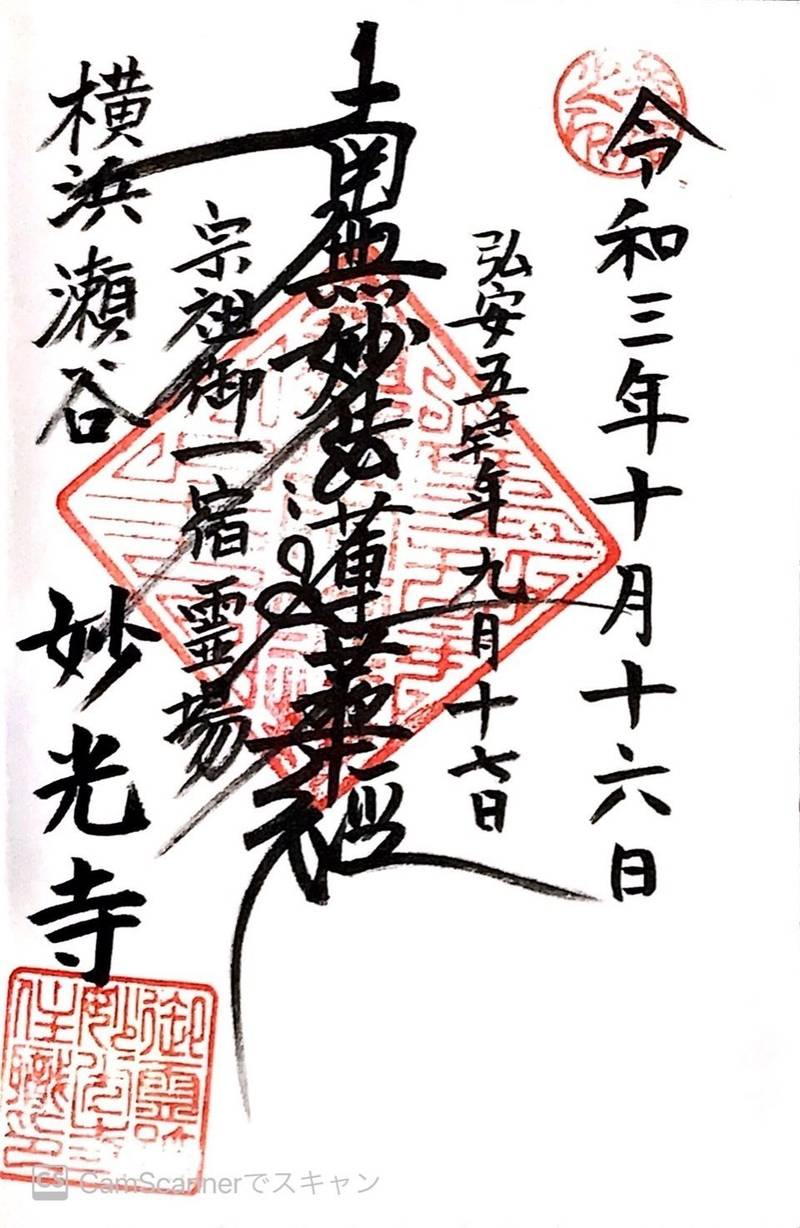 令和三年十月十六日
弘安五壬午年九月十七日
南無妙法蓮華経
宗祖御一宿霊場
横浜瀬谷 妙光寺
御霊跡
妙光寺
住職印
CS CamScannerでスキャン